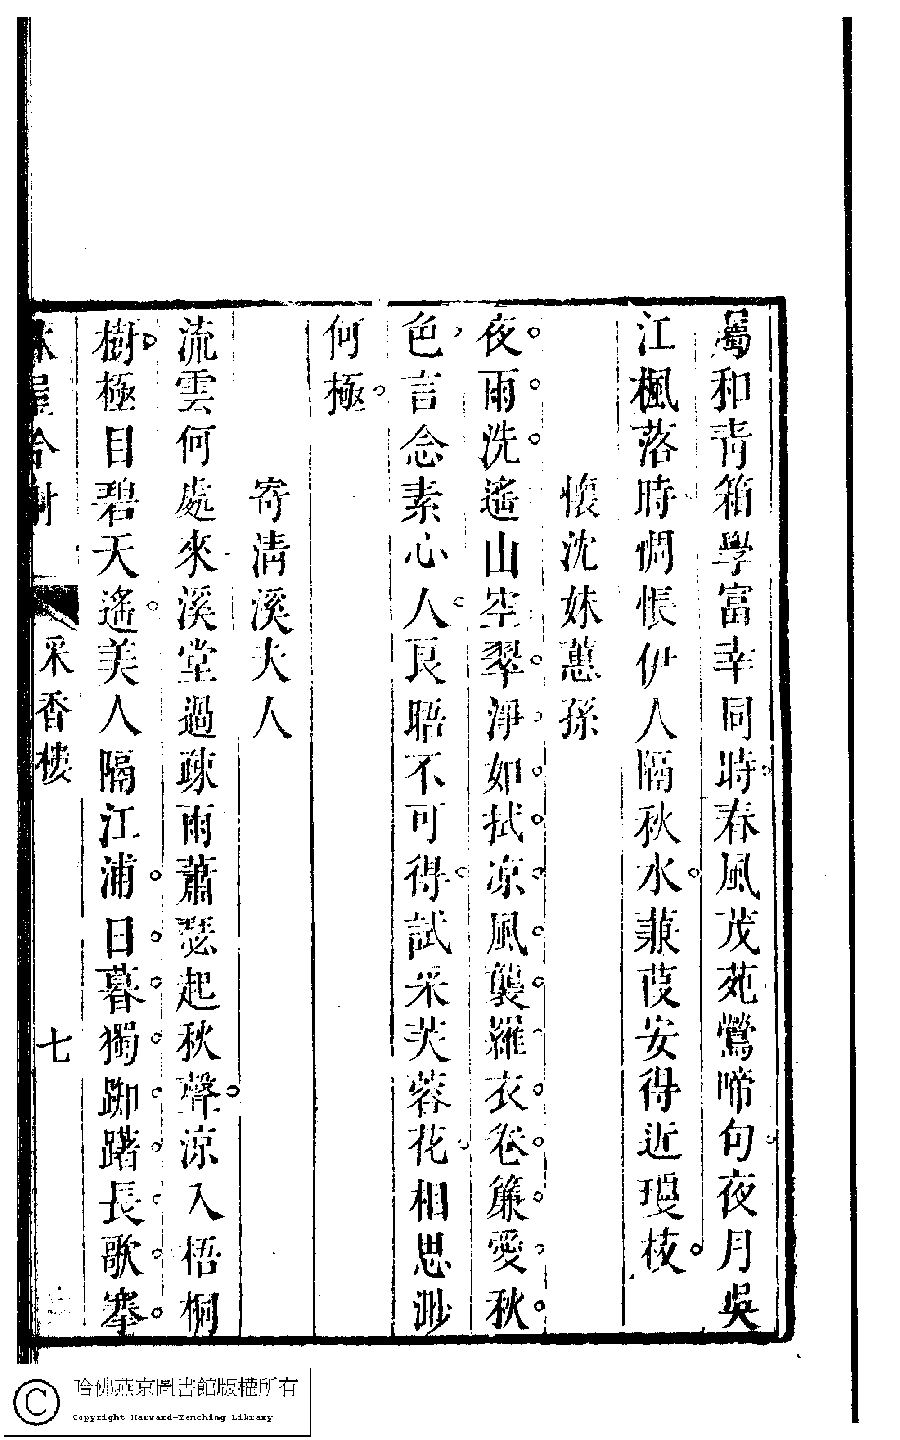 屬和青箱學富幸同時春風茂苑鶯啼句夜月吳
江楓落時惆悵伊人隔秋水蒹葭安得近瓊枝
懷沈妹蕙孫
夜雨洗遙山空翠淨如拭凉風襲羅衣卷簾愛秋
色言念素心人良晤不可得試采芙蓉花相思渺
何極
寄清溪夫人
流雲何處來溪堂過疎雨蕭瑟起秋聲涼入梧桐
樹極目碧天遙美人隔江浦日暮獨踟躇長歌搴
采香樓
七
哈佛燕京圖書館版權所有
Copyright Harvard-Yenching Library